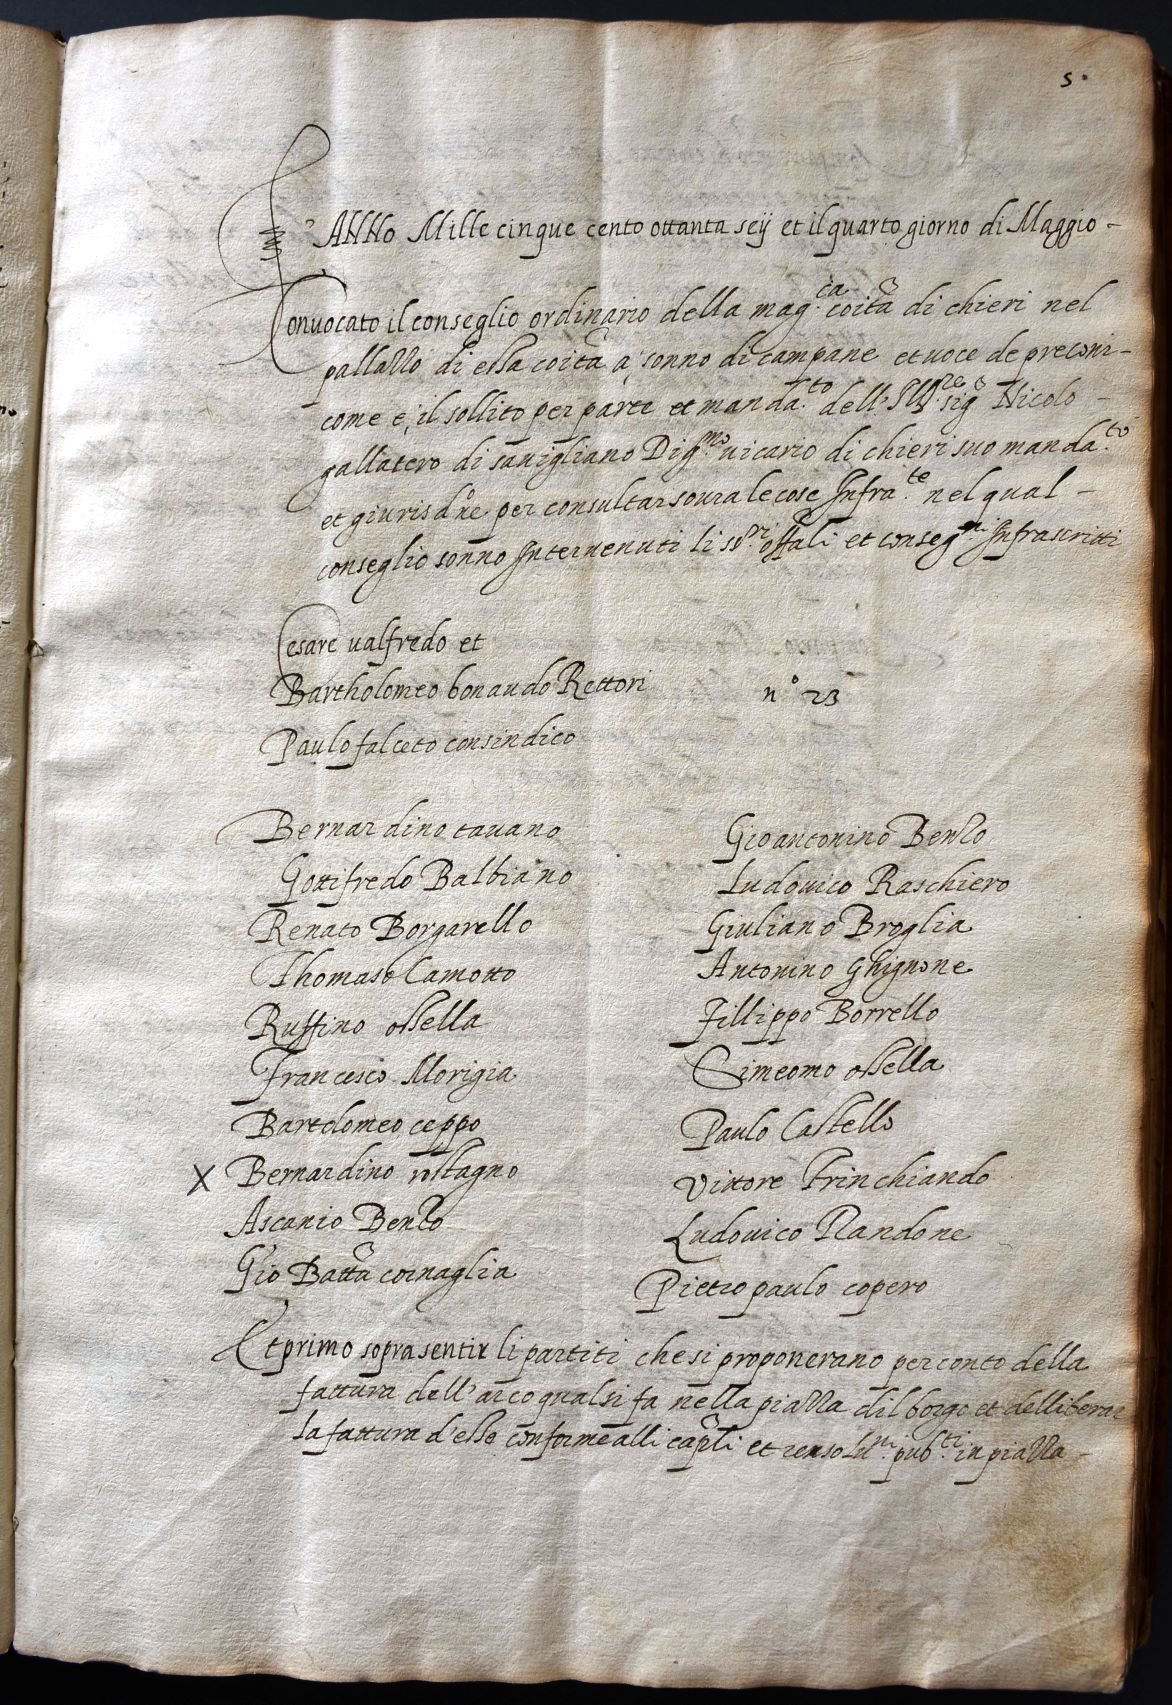 5.
L'ANNo Mille cinque cento ottanta seij et il quarto giorno di Maggio -
Convocato il conseglio ordinario della mag.ca coita di chieri nel
pallazzo di essa coita a sonno di campane et voce de preconi -
come è il sollito per parte et manda.to dell' Ill.re sig.r Nicolo -
gallatero di savigliano Dig.mo vicario di chieri suo manda.to
et giurisd.ne per consultar soura le cose Infra.te nel qual -
conseglio sonno Intervenuti li ss.ri offali et conseg.ri Infrascritti
Cesare valfredo et
Bartholomeo bonaudo Rettori n° 23
Paulo falceto consindico
Bernardino tavano Gioantonino Benzo
Gottifredo Balbiano Ludovico Raschiero
Renato Borgarello Giuliano Broglia
Thomaso Camotto Antonino Ghignone
Ruffino ossella Fillippo Borrello
Francesco Morigia Simeomo ossella
Bartolomeo ceppo Paulo Castello
X Bernardino rostagno Vittore Trinchiando
Ascanio Benzo Ludovico Randone
Gio Batta cornaglia Pietro paulo copero
Et primo sopra sentir li partiti che si proponerano per conto della
fattura dell' arco qual si fa nella piazza dil borgo et delliberar
la fattura d'esso conforme alli capli et pub.ti in piazza -